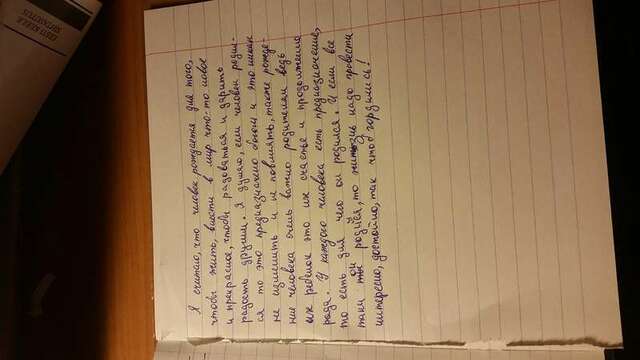 Я считаю, что человек рождается для того,
чтобы жить, внести в мир что-то новое
и прекрасное, чтобы радоваться и дарить
радость другим. Я думаю, если человек родил-
ся то это предназначено богом и это никак
не изменить и не повлиять, также рожде-
ние человека очень важно родителям ведь
их ребёнок это их счастье и продолжение
рода. У каждого человека есть предназначение,
то есть для чего он родился. И если всё
таки он родился, то жизнь надо провести
интересно, достойно, так чтоб гордились!